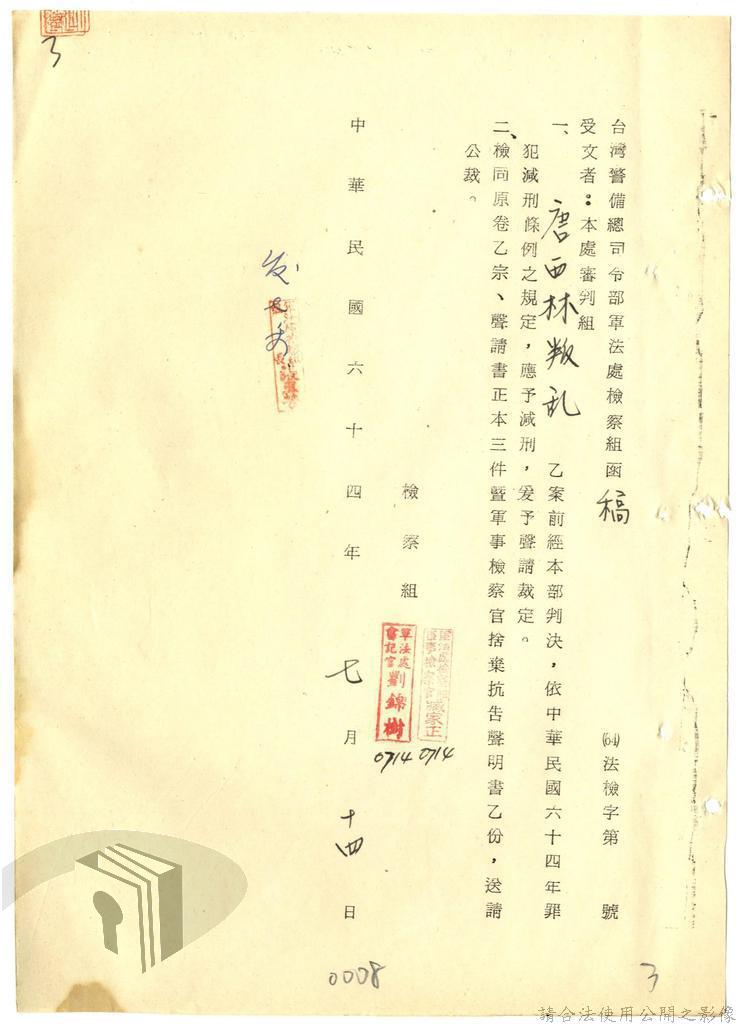 台灣警備總司令部軍法處檢察組函稿
(64)法檢字第　號
受文者：本處審判組
一、唐西林叛乱乙案前經本部判決，依中華民國六十四年罪
犯減刑條例之規定，應予減刑，爰予聲請裁定。
二、檢同原卷乙宗、聲請書正本三件暨軍事檢察官捨棄抗告聲明書乙份，送請
公裁。
檢察組
軍法處
書記官
劉錦樹
0714
0714
中華民國六十四年七月十四日
3
3
0008
請合法使用公開之影像